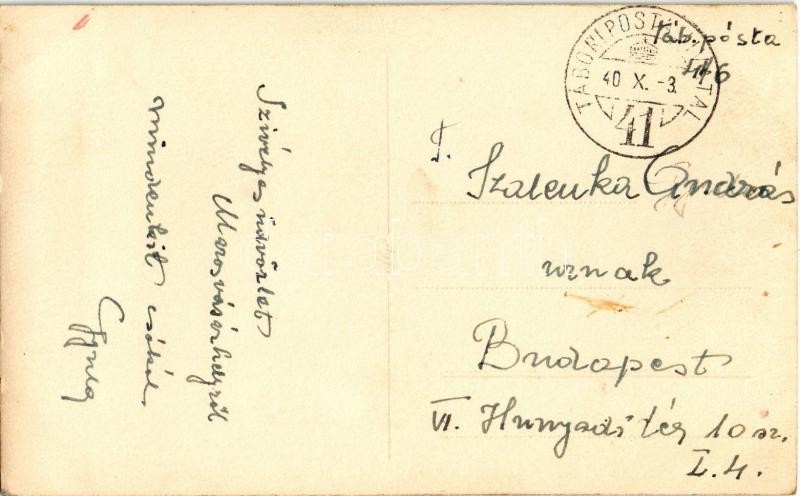 Szivélyes üdvözlet
Marosvásárhelyről
mindenkit csókol
Gyula
TÁBORI POSTAHIVATAL
40 X. -3.
41
Táb. pósta
446
T.
Szalenka András
urnak
Budapest
VI. Hunyadi tér 10 sz.
I. 4.
darabanth